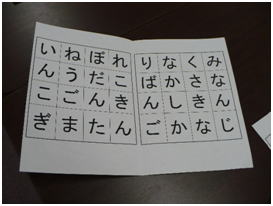 い ね ぽ れ
ん う だ こ
こ ご ん き
ぎ ま た ん
り な く み
ば か さ な
ん し き ん
ご か な じ